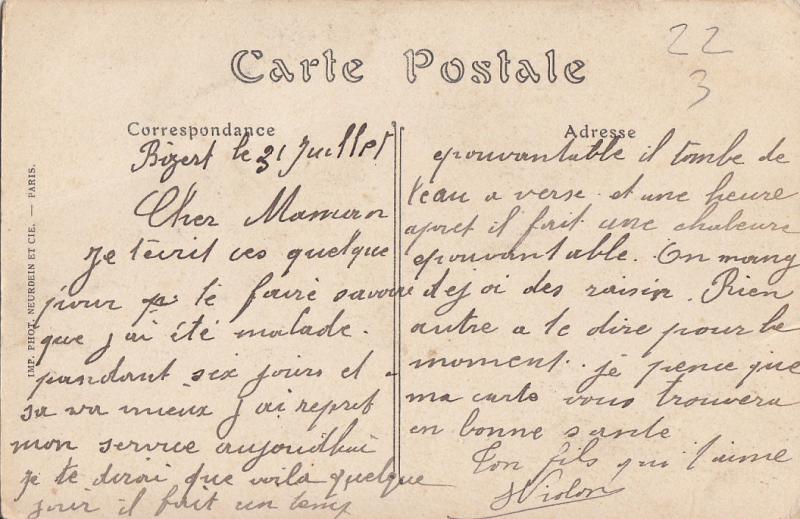 22
3
Carte Postale
Correspondance
Adresse
IMP. PHOT. NEURDEIN ET CIE. — PARIS.
Bizert le 31 Juillet
Cher Maman
Je técrit ces quelque
pour te faire savoire
que j'ai été malade.
pandant six jours et
sa va mieux j'ai repret
mon service aujourdhui
je te dirai que voila quelque
jour il fait un temp
epouvantable il tombe de
leau a verse et une heure
apret il fait une chaleure
epouvantable. On mang
dejoi des raisin. Rien
autre a te dire pour le
moment. je pence que
ma carte vous trouvera
en bonne sante
Ton fils qui t'aime
Violon